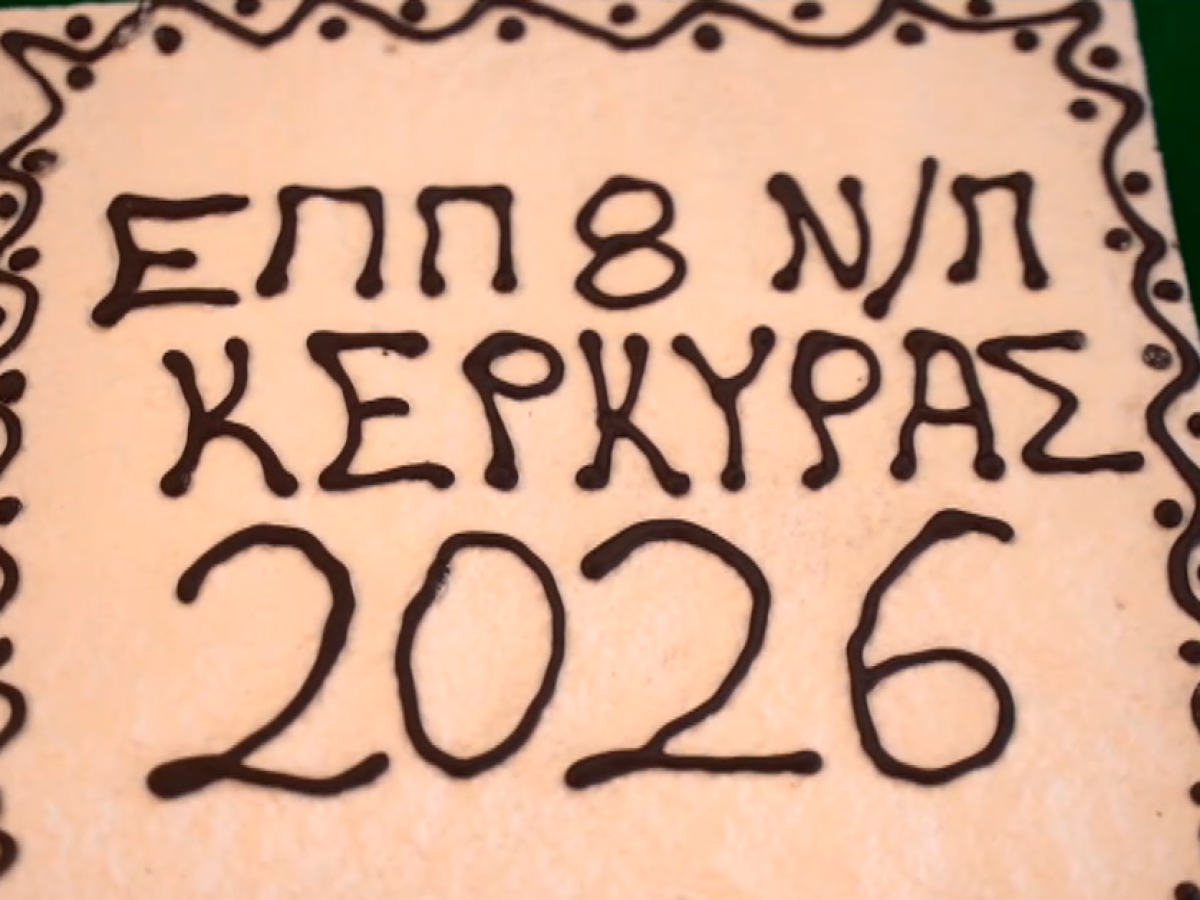 ΕΠΠ 8 Ν/Π
ΚΕΡΚΥΡΑΣ
2026